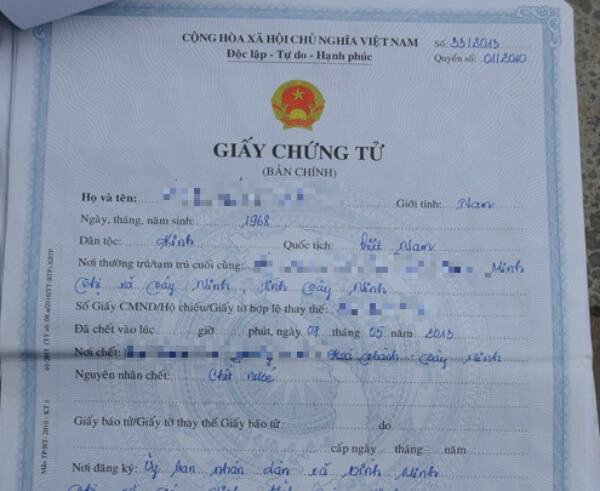 CỘNG HÒA XÃ HỘI CHỦ NGHĨA VIỆT NAM
Độc lập - Tự do - Hạnh phúc
Số: 33/2013
Quyển số: 01/2010
GIẤY CHỨNG TỬ
(BẢN CHÍNH)
Họ và tên: Giới tính: Nam
Ngày, tháng, năm sinh: 1968
Dân tộc: Kinh Quốc tịch: Việt Nam
Nơi thường trú/tạm trú cuối cùng: Minh
thị xã Tây Ninh, tỉnh Tây Ninh
Số Giấy CMND/Hộ chiếu/Giấy tờ hợp lệ thay thế:
Đã chết vào lúc giờ phút, ngày tháng 05 năm 2013
Nơi chết: Hoà Thành - Tây Ninh
Nguyên nhân chết: Chết nước
Giấy báo tử/Giấy tờ thay thế Giấy báo tử do
cấp ngày tháng năm
Nơi đăng ký: Ủy ban nhân dân xã Bình Minh
Mẫu TP/HT- 2010 - KT.1